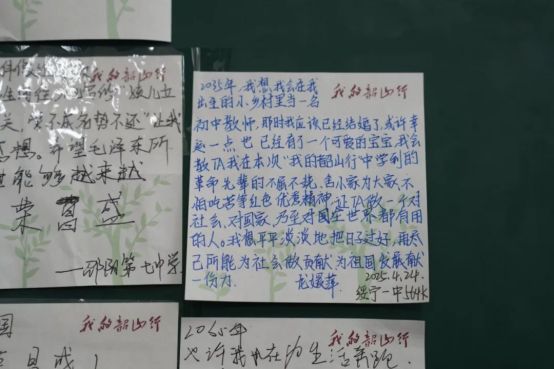 我的韶山行
关,
不成名势不还"让我
思想。希望毛泽东所
能够越来越
荣昌盛
——邵阳第七中学
我的韶山行
2035年,我想,我会在我
出生的小乡村里当一名
初中教师,那时我应该已经结婚了,或许幸
运一点也已经有了一个可爱的宝宝,我会
教TA我在本次"我的韶山行"中学到的
革命先辈的不屈不挠,舍小家为大家,不
怕吃苦等红色优秀精神,让TA做一个对
社会,对国家,乃至对国至世界都有用
的人。我想平平淡淡地把日子过好,再尽
己所能为社会做贡献,为祖国发展献
一份力
2025.4.24.
绥宁一中564K
国
我的韶山行
我的韶山行
2035年
也许我在为生活奔跑